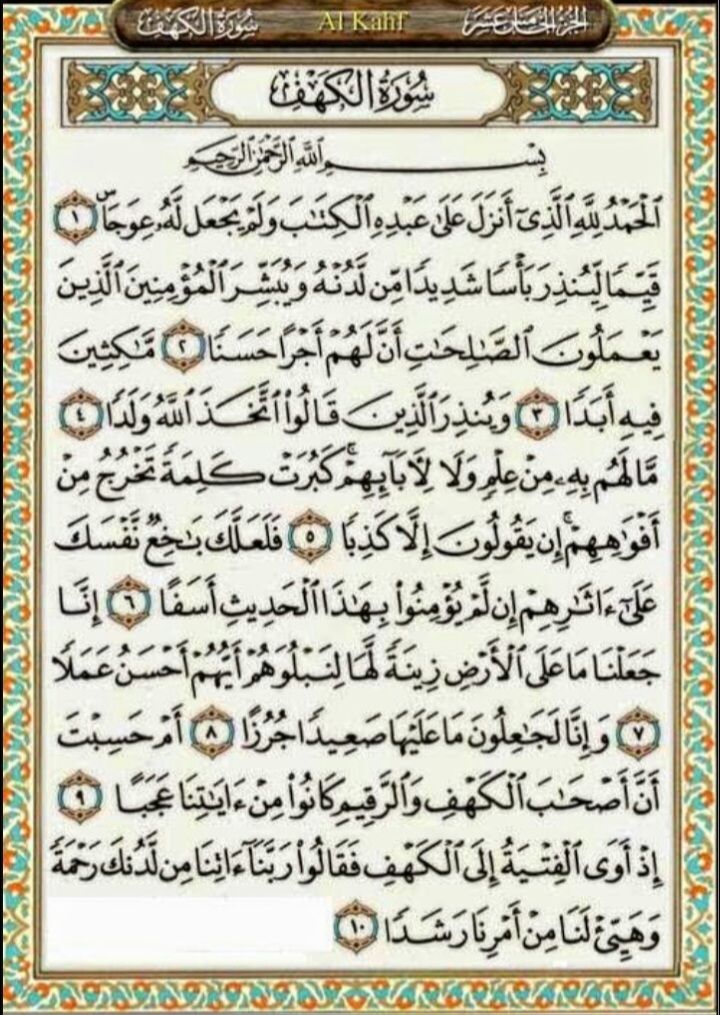 سُورَةُ الكَهْفِ Al Kahf الجُزْءُ الخَامِسَ عَشَرَ
سُورَةُ الكَهْفِ
بِسْمِ ٱللَّهِ ٱلرَّحْمَٰنِ ٱلرَّحِيمِ
ٱلْحَمْدُ لِلَّهِ ٱلَّذِىٓ أَنزَلَ عَلَىٰ عَبْدِهِ ٱلْكِتَٰبَ وَلَمْ يَجْعَل لَّهُۥ عِوَجَاۜ ١
قَيِّمًا لِّيُنذِرَ بَأْسًا شَدِيدًا مِّن لَّدُنْهُ وَيُبَشِّرَ ٱلْمُؤْمِنِينَ ٱلَّذِينَ
يَعْمَلُونَ ٱلصَّٰلِحَٰتِ أَنَّ لَهُمْ أَجْرًا حَسَنًا ٢ مَّٰكِثِينَ
فِيهِ أَبَدًا ٣ وَيُنذِرَ ٱلَّذِينَ قَالُوا۟ ٱتَّخَذَ ٱللَّهُ وَلَدًا ٤
مَّا لَهُم بِهِۦ مِنْ عِلْمٍ وَلَا لِءَابَآئِهِمْ ۚ كَبُرَتْ كَلِمَةً تَخْرُجُ مِنْ
أَفْوَٰهِهِمْ ۚ إِن يَقُولُونَ إِلَّا كَذِبًا ٥ فَلَعَلَّكَ بَٰخِعٌ نَّفْسَكَ
عَلَىٰٓ ءَاثَٰرِهِمْ إِن لَّمْ يُؤْمِنُوا۟ بِهَٰذَا ٱلْحَدِيثِ أَسَفًا ٦ إِنَّا
جَعَلْنَا مَا عَلَى ٱلْأَرْضِ زِينَةً لَّهَا لِنَبْلُوَهُمْ أَيُّهُمْ أَحْسَنُ عَمَلًا
٧ وَإِنَّا لَجَٰعِلُونَ مَا عَلَيْهَا صَعِيدًا جُرُزًا ٨ أَمْ حَسِبْتَ
أَنَّ أَصْحَٰبَ ٱلْكَهْفِ وَٱلرَّقِيمِ كَانُوا۟ مِنْ ءَايَٰتِنَا عَجَبًا ٩
إِذْ أَوَى ٱلْفِتْيَةُ إِلَى ٱلْكَهْفِ فَقَالُوا۟ رَبَّنَآ ءَاتِنَا مِن لَّدُنكَ رَحْمَةً
وَهَيِّئْ لَنَا مِنْ أَمْرِنَا رَشَدًا ١٠